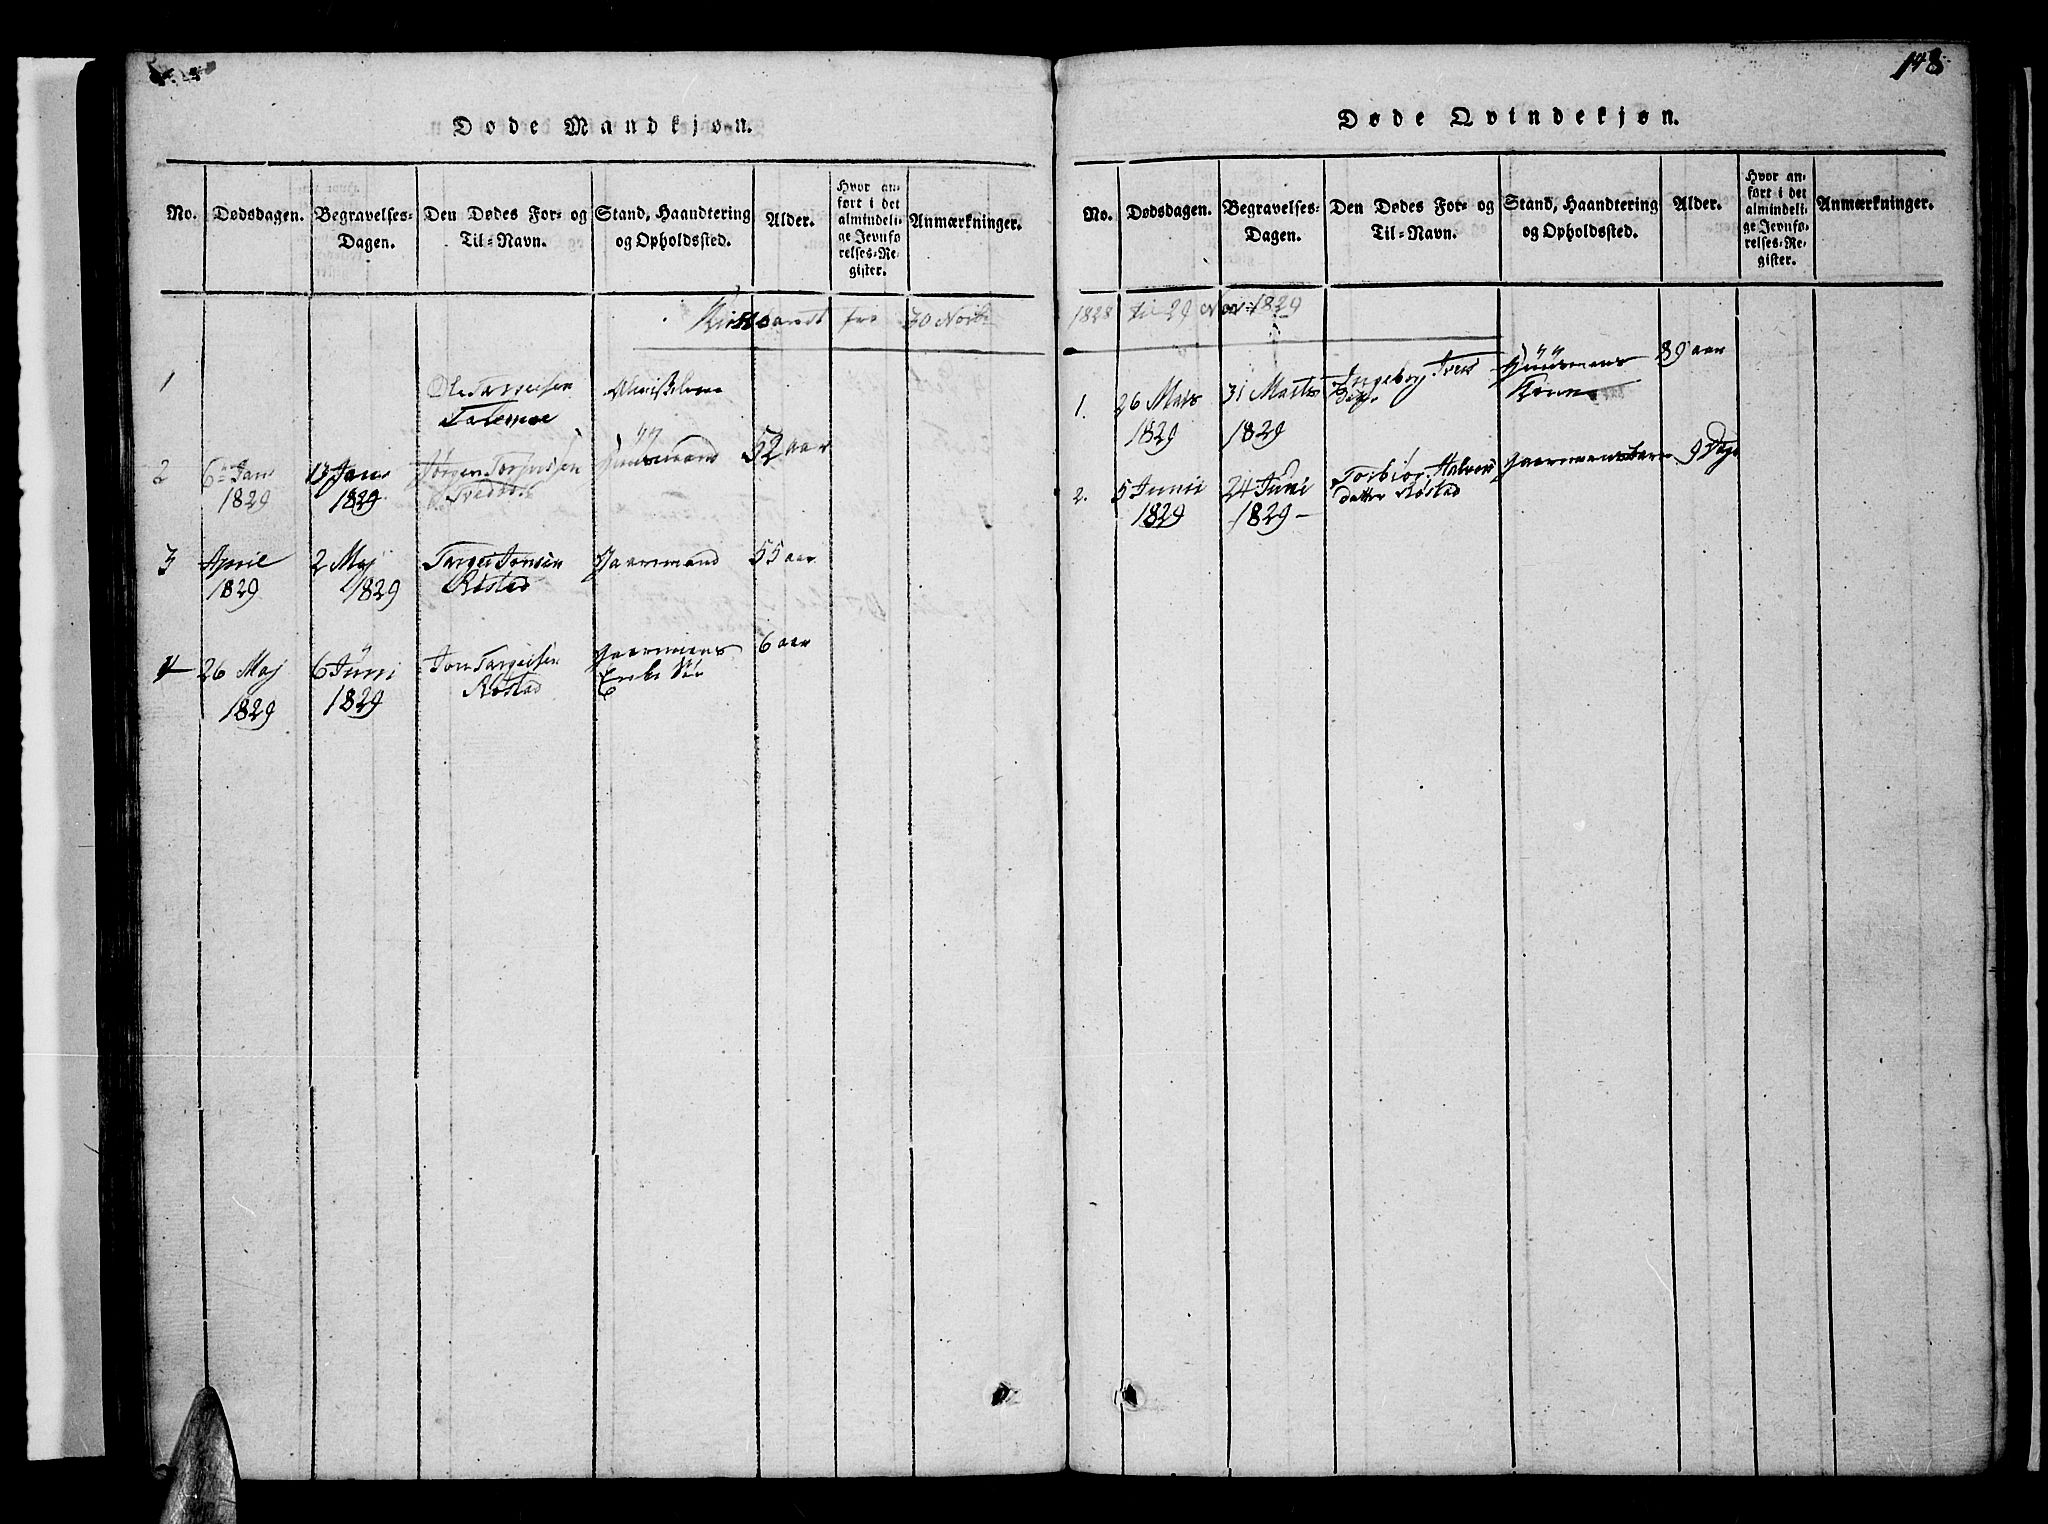 148
Døde Mandkjøn.
No. Dødsdagen. Begravelses-Dagen. Den Dødes For- og Til-Navn. Stand, Haandtering og Opholdssted. Alder. Hvor anført i det almindelige Jevnførelses-Register. Anmærkninger.
Kirke fra 30 Novb
1 Ole Targeisen
2 6 Jan 1829 13 Jan 1829 Jørgen Huusmand 52 aar
3 April 1829 2 Maj 1829 Targei Jonsen Røstad Gaarmand 55 aar
4 26 Maj 1829 6 Juni 1829 Jon Targeisen Røstad Gaarmens 6 aar
Døde Qvindekjøn.
No. Dødsdagen. Begravelses-Dagen. Den Dødes For- og Til-Navn. Stand, Haandtering og Opholdssted. Alder. Hvor anført i det almindelige Jevnførelses-Register. Anmærkninger.
1828 til 29 Nov: 1829
1. 26 Mars 1829 31 Marts 1829 Ingeborg Huusmens Kone 89 aar
2. 5 Junii 1829 24 Juni 1829 Torbiør Halvors datter Røstad Gaarmensbarn 9 Dage